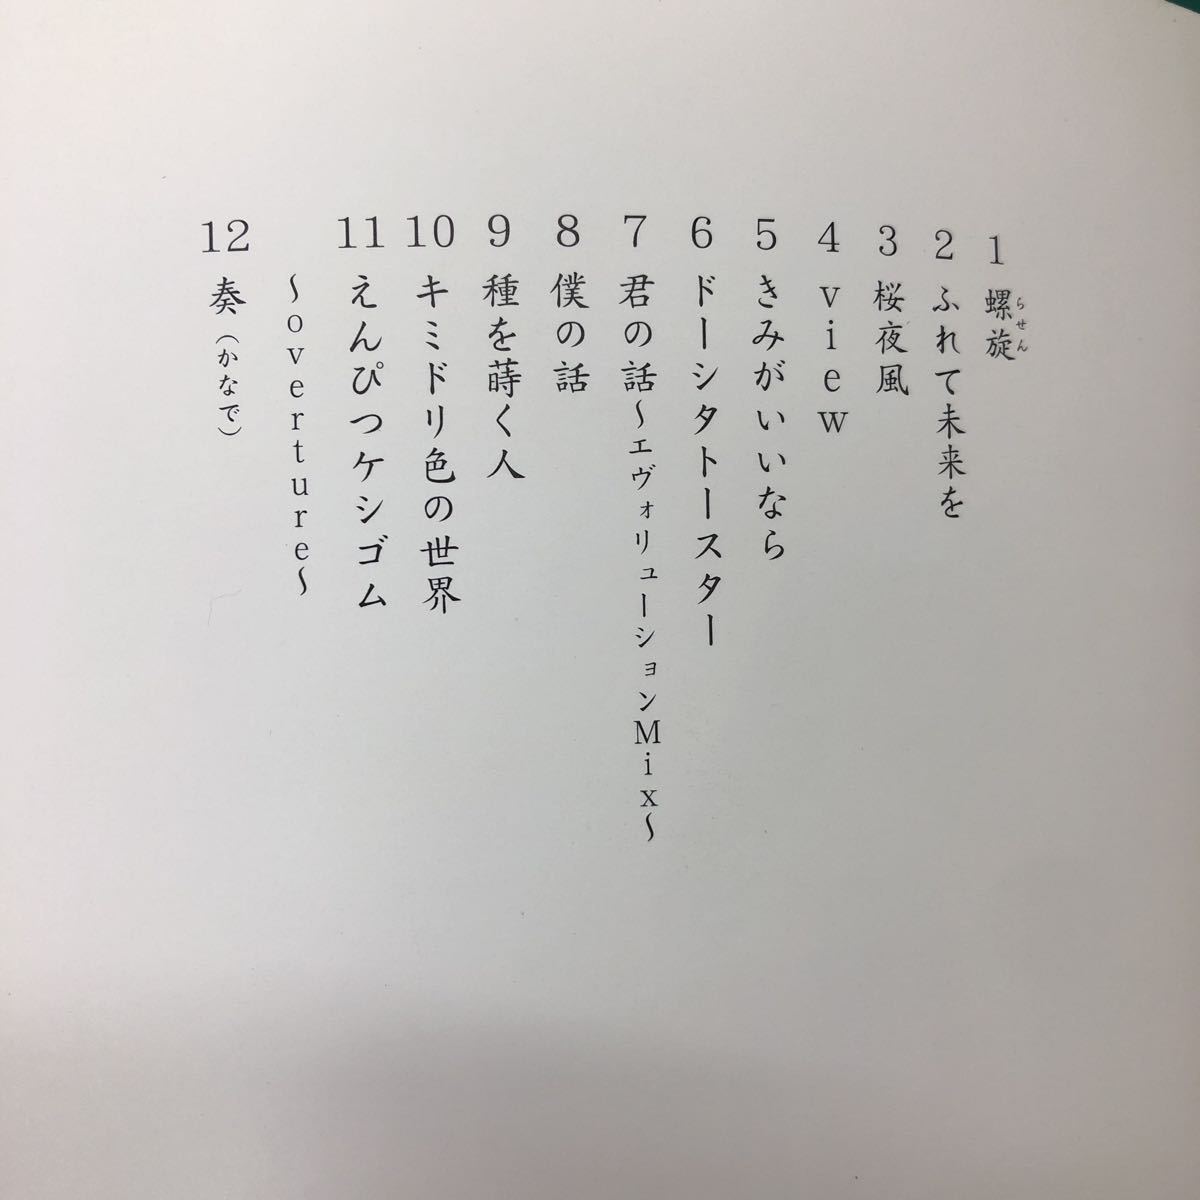 1 螺旋
らせん
2 ふれて未来を
3 桜夜風
4 view
5 きみがいいなら
6 ドーシタトースター
7 君の話～エヴォリューションMix～
8 僕の話
9 種を蒔く人
10 キミドリ色の世界
11 えんぴつケシゴム
～overture～
12 奏（かなで）